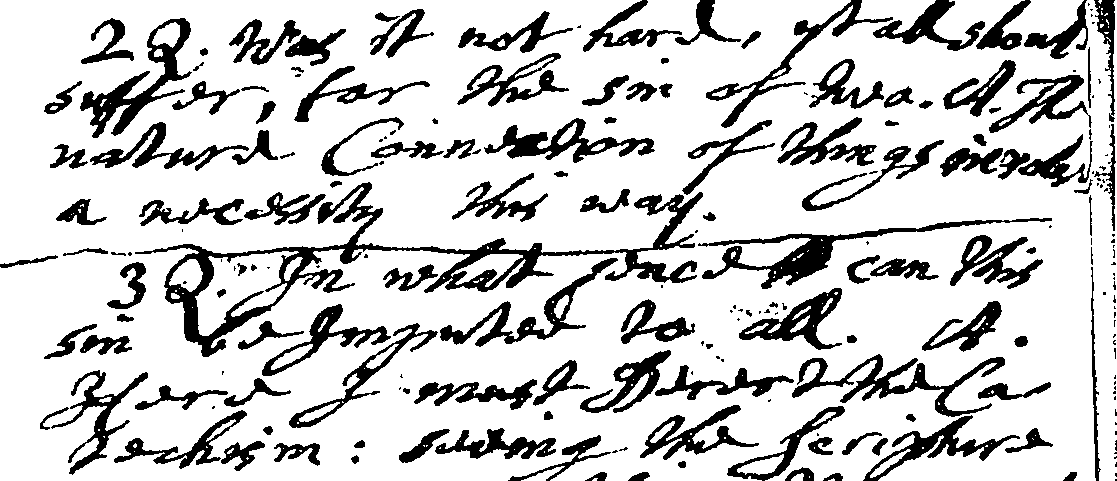 2 Q. Was it not hard, yt all should
suffer, for the sin of two. A. The
nature Connection of things involves
a necessity this way.
3 Q. In what sence can this
sin be Imputed to all. A.
Here I must Desert the Ca-
techism: seeing the Scripture